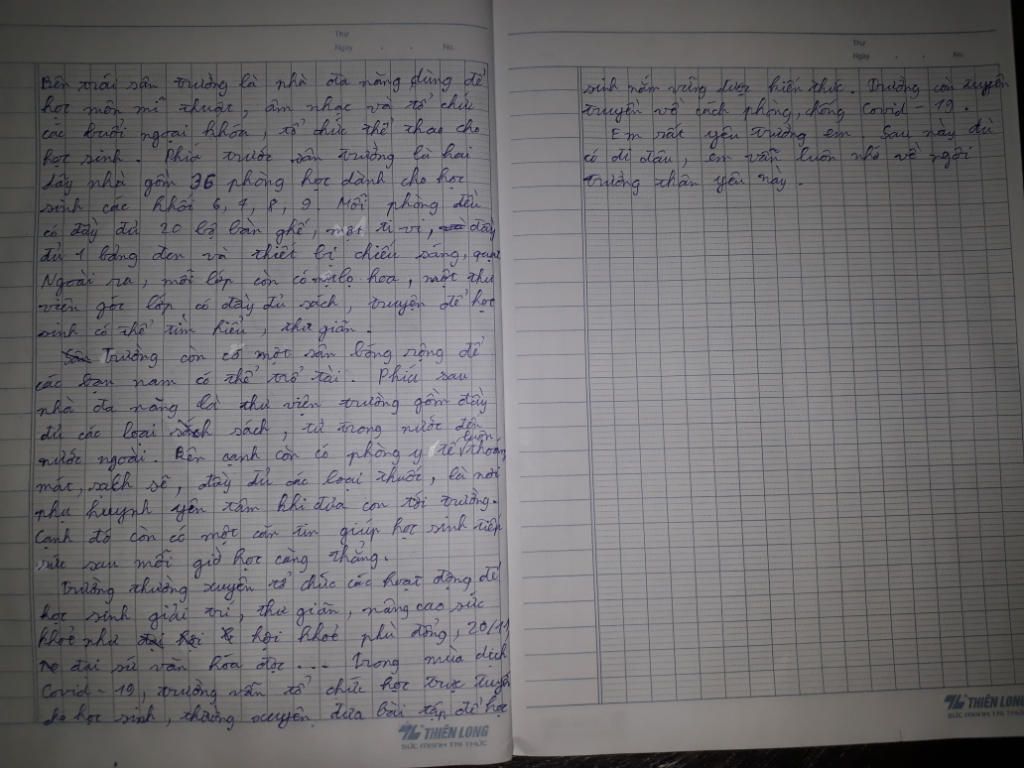 Thứ
Ngày . . No.
Bên trái sân trường là nhà đa năng dùng để
học môn mĩ thuật, âm nhạc và tổ chức
các buổi ngoại khóa, tổ chức thể thao cho
học sinh. Phía trước sân trường là hai
dãy nhà gồm 36 phòng học dành cho học
sinh các khối 6, 7, 8, 9. Mỗi phòng đều
có đầy đủ 20 bộ bàn ghế, một ti vi, đầy
đủ 1 bảng đen và thiết bị chiếu sáng, quạt
Ngoài ra, mỗi lớp còn có lọ hoa, một thư
viện góc lớp có đầy đủ sách, truyện để học
sinh có thể tìm hiểu, thư giãn.
Trường còn có một sân bóng rộng để
các bạn nam có thể trổ tài. Phía sau
nhà đa năng là thư viện trường gồm đầy
đủ các loại sách, từ trong nước đến
nước ngoài. Bên cạnh còn có phòng y tế luôn thoáng
mát, sạch sẽ, đầy đủ các loại thuốc, là nơi
phụ huynh yên tâm khi đưa con tới trường.
Cạnh đó còn có một căn tin giúp học sinh tiếp
sức sau mỗi giờ học căng thẳng.
Trường thường xuyên tổ chức các hoạt động để
học sinh giải trí, thư giãn, nâng cao sức
khoẻ như hội khoẻ phù đổng, 20/11
đại sứ văn hóa đọc ... Trong mùa dịch
Covid-19, trường vẫn tổ chức học trực tuyến
cho học sinh, thường xuyên đưa bài tập để học
THIÊN LONG
SỨC MẠNH TRI THỨC
Thứ
Ngày . . No.
sinh nắm vững được kiến thức. Trường còn tuyên
truyền về cách phòng, chống Covid-19.
Em rất yêu trường em. Sau này dù
có đi đâu, em vẫn luôn nhớ về ngôi
trường thân yêu này.
THIÊN LONG
SỨC MẠNH TRI THỨC